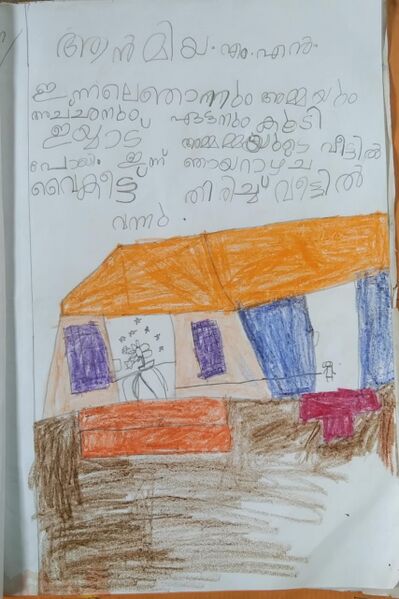 ആൻ മിയ. എം. എൻ.
ഇന്നലെ ഞാനും അമ്മയും
അച്ചനും ഏട്ടനും കൂടി
അമ്മമ്മയുടെ വീട്ടിൽ
പോയി. ഇന്ന് ഞായറാഴ്ച
വൈകീട്ട് തിരിച്ച് വീട്ടിൽ
വന്നു.